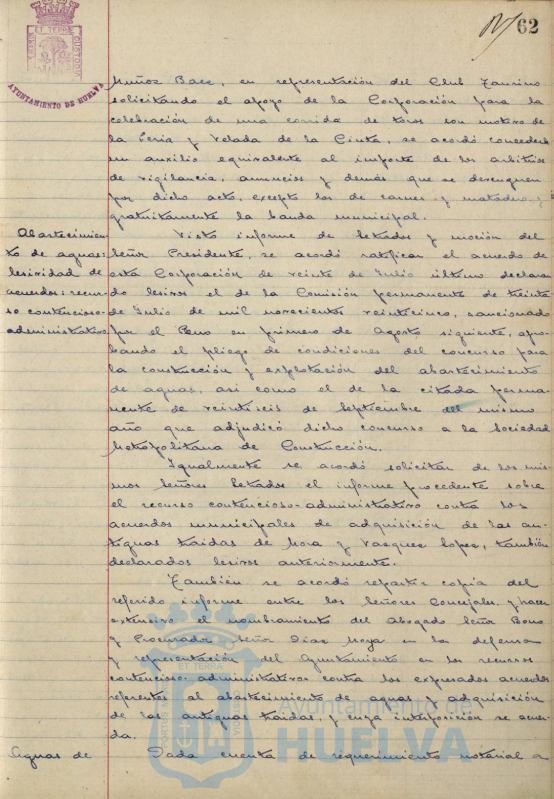 62
AYUNTAMIENTO DE HUELVA
Muñoz Baez, en representación del Club Taurino
solicitando el apoyo de la Corporación para la
celebración de una corrida de toros con motivo de
la Feria y Velada de la Cinta, se acordó concederle
un auxilio equivalente al importe de los arbitrios
de vigilancia, anuncios y demás que se devenguen
por dicho acto, excepto los de carnes y matadero, y
gratuitamente la banda municipal.
Abastecimien
to de aguas:
lesividad de
acuerdos: recur-
so contencioso-
administrativo.
Visto informe de Letrados y moción del
Señor Presidente, se acordó ratificar el acuerdo de
esta Corporación de veinte de Julio último declaran
do lesivos el de la Comisión permanente de treinta
de Julio de mil novecientos veinticinco, sancionado
por el Pleno en primero de Agosto siguiente, apro-
bando el pliego de condiciones del concurso para
la construcción y explotación del abastecimiento
de aguas, asi como el de la citada perma-
nente de veintiseis de Septiembre del mismo
año que adjudicó dicho concurso a la Sociedad
Metropolitana de Construcción.
Igualmente se acordó solicitar de los mis-
mos Señores Letrados el informe procedente sobre
el recurso contencioso-administrativo contra los
acuerdos municipales de adquisición de las an-
tiguas traidas de Mora y Vazquez Lopez, también
declarados lesivos anteriormente.
También se acordó repartir copia del
referido informe entre los Señores Concejales, y hacer
extensivo el nombramiento del Abogado Señor Bono
y Procurador Señor Diaz Moya en la defensa
y representación del Ayuntamiento en los recursos
contencioso-administrativos contra los expresados acuerdos
referentes al abastecimiento de aguas y adquisición
de las antiguas traidas, y cuya interposición se acuer
da.
Aguas de
Dada cuenta de requerimiento notarial a
Ayuntamiento de
HUELVA